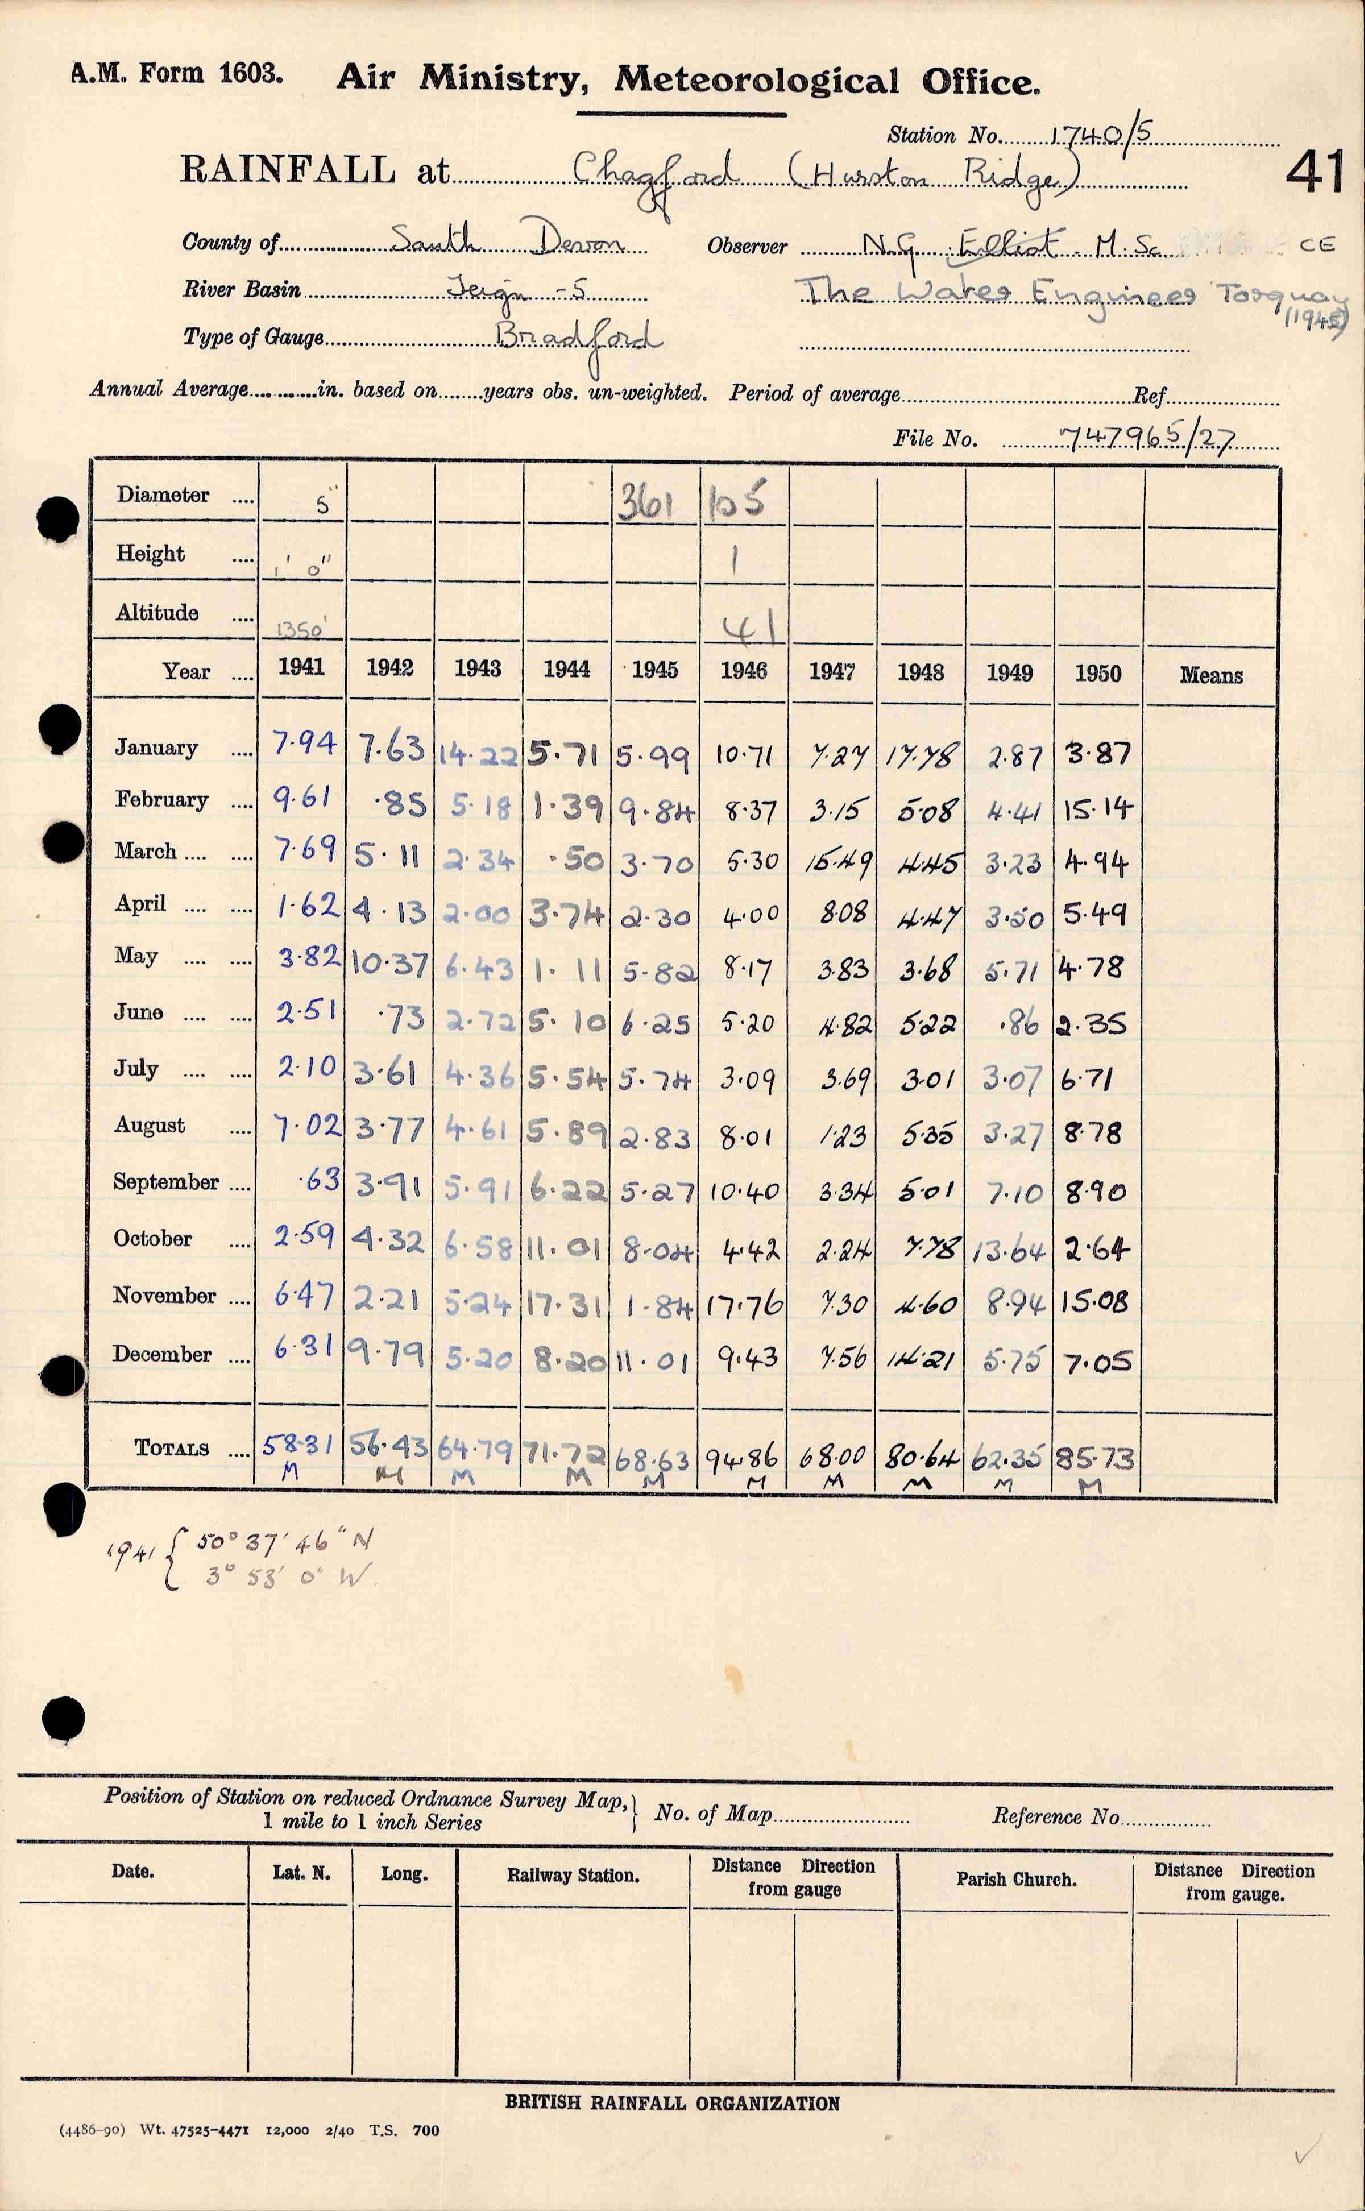 A.M. Form 1603. Air Ministry, Meteorological Office.
Station No. 1740/5
RAINFALL at Chagford (Hurston Ridge) 41
County of South Devon Observer N.G. Elliot. M.Sc CE
River Basin Teign -5 The Water Engineer Torquay
(1945)
Type of Gauge Bradford
Annual Average in. based on years obs. un-weighted. Period of average Ref
File No. 747965/27
Diameter 5" 361 105
Height 1' 0" 1
Altitude 1350' 41
Year 1941 1942 1943 1944 1945 1946 1947 1948 1949 1950 Means
January 7.94 7.63 14.22 5.71 5.99 10.71 7.27 17.78 2.87 3.87
February 9.61 .85 5.18 1.39 9.84 8.37 3.15 5.08 4.41 15.14
March 7.69 5.11 2.34 .50 3.70 5.30 15.49 4.45 3.23 4.94
April 1.62 4.13 2.00 3.74 2.30 4.00 8.08 4.47 3.50 5.49
May 3.82 10.37 6.43 1.11 5.82 8.17 3.83 3.68 5.71 4.78
June 2.51 .73 2.72 5.10 6.25 5.20 4.82 5.22 .86 2.35
July 2.10 3.61 4.36 5.54 5.74 3.09 3.69 3.01 3.07 6.71
August 7.02 3.77 4.61 5.89 2.83 8.01 1.23 5.35 3.27 8.78
September .63 3.91 5.91 6.22 5.27 10.40 3.34 5.01 7.10 8.90
October 2.59 4.32 6.58 11.01 8.04 4.42 2.24 7.78 13.64 2.64
November 6.47 2.21 5.24 17.31 1.84 17.76 7.30 4.60 8.94 15.08
December 6.31 9.79 5.20 8.20 11.01 9.43 7.56 14.21 5.75 7.05
TOTALS 58.31 56.43 64.79 71.72 68.63 94.86 68.00 80.64 62.35 85.73
M M M M M M M M M M
1941 { 50° 37' 46" N
3° 53' 0" W.
Position of Station on reduced Ordnance Survey Map, } No. of Map Reference No
1 mile to 1 inch Series
Date. Lat. N. Long. Railway Station. Distance Direction from gauge Parish Church. Distance Direction from gauge.
BRITISH RAINFALL ORGANIZATION
(4486-90) Wt. 47525-4471 12,000 2/40 T.S. 700